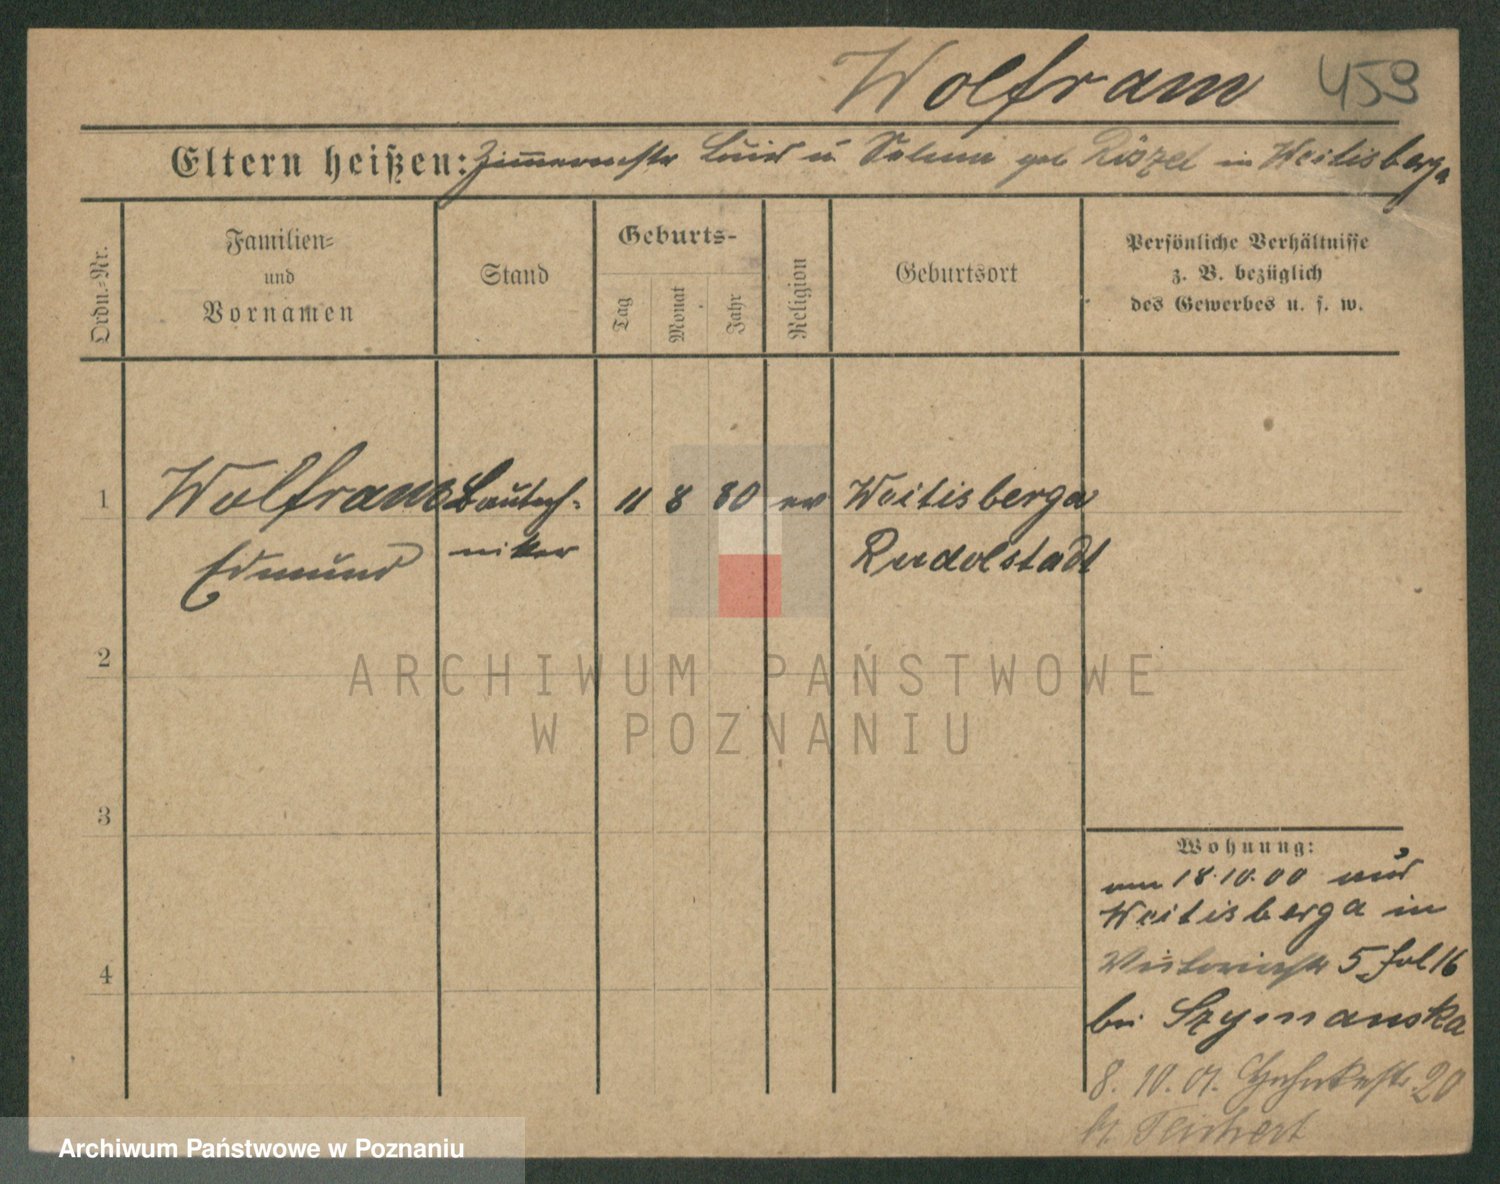 Wolfram 459
Eltern heißen: Zimmermstr Louis u. Selma geb in Weitisberga
Ordn.-Nr.
Familien-
und
Vornamen
Stand
Geburts-
Tag
Monat
Jahr
Religion
Geburtsort
Persönliche Verhältnisse
z. B. bezüglich
des Gewerbes u. s. w.
1 Wolfram Bautech- 11 8 80 ev Weitisberga
Edmund niker Rudolstadt
2
ARCHIWUM PAŃSTWOWE
W POZNANIU
3
Wohnung:
am 18.10.00 aus
Weitisberga in
Victoriastr 5 Jol 16
bei Szymanska
4
8. 10. 01. 20
b. Teichert
Archiwum Państwowe w Poznaniu